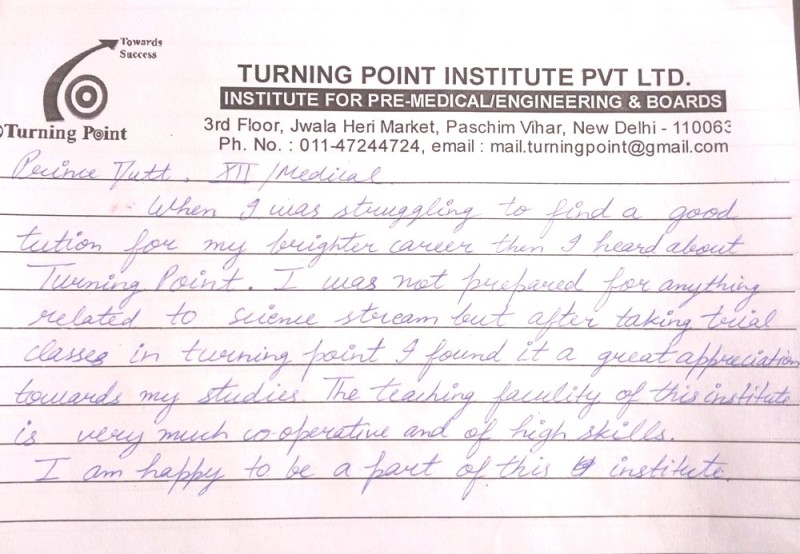 Towards
Success
Turning Point
TURNING POINT INSTITUTE PVT LTD.
INSTITUTE FOR PRE-MEDICAL/ENGINEERING & BOARDS
3rd Floor, Jwala Heri Market, Paschim Vihar, New Delhi - 110063
Ph. No. : 011-47244724, email : mail.turningpoint@gmail.com
Prince Dutt, XII/Medical
When I was struggling to find a good
tution for my brighter career then I heard about
Turning Point. I was not prepared for anything
related to science stream but after taking trial
classes in turning point I found it a great appreciation
towards my studies. The teaching faculity of this institute
is very much co-operative and of high skills.
I am happy to be a part of this institute.